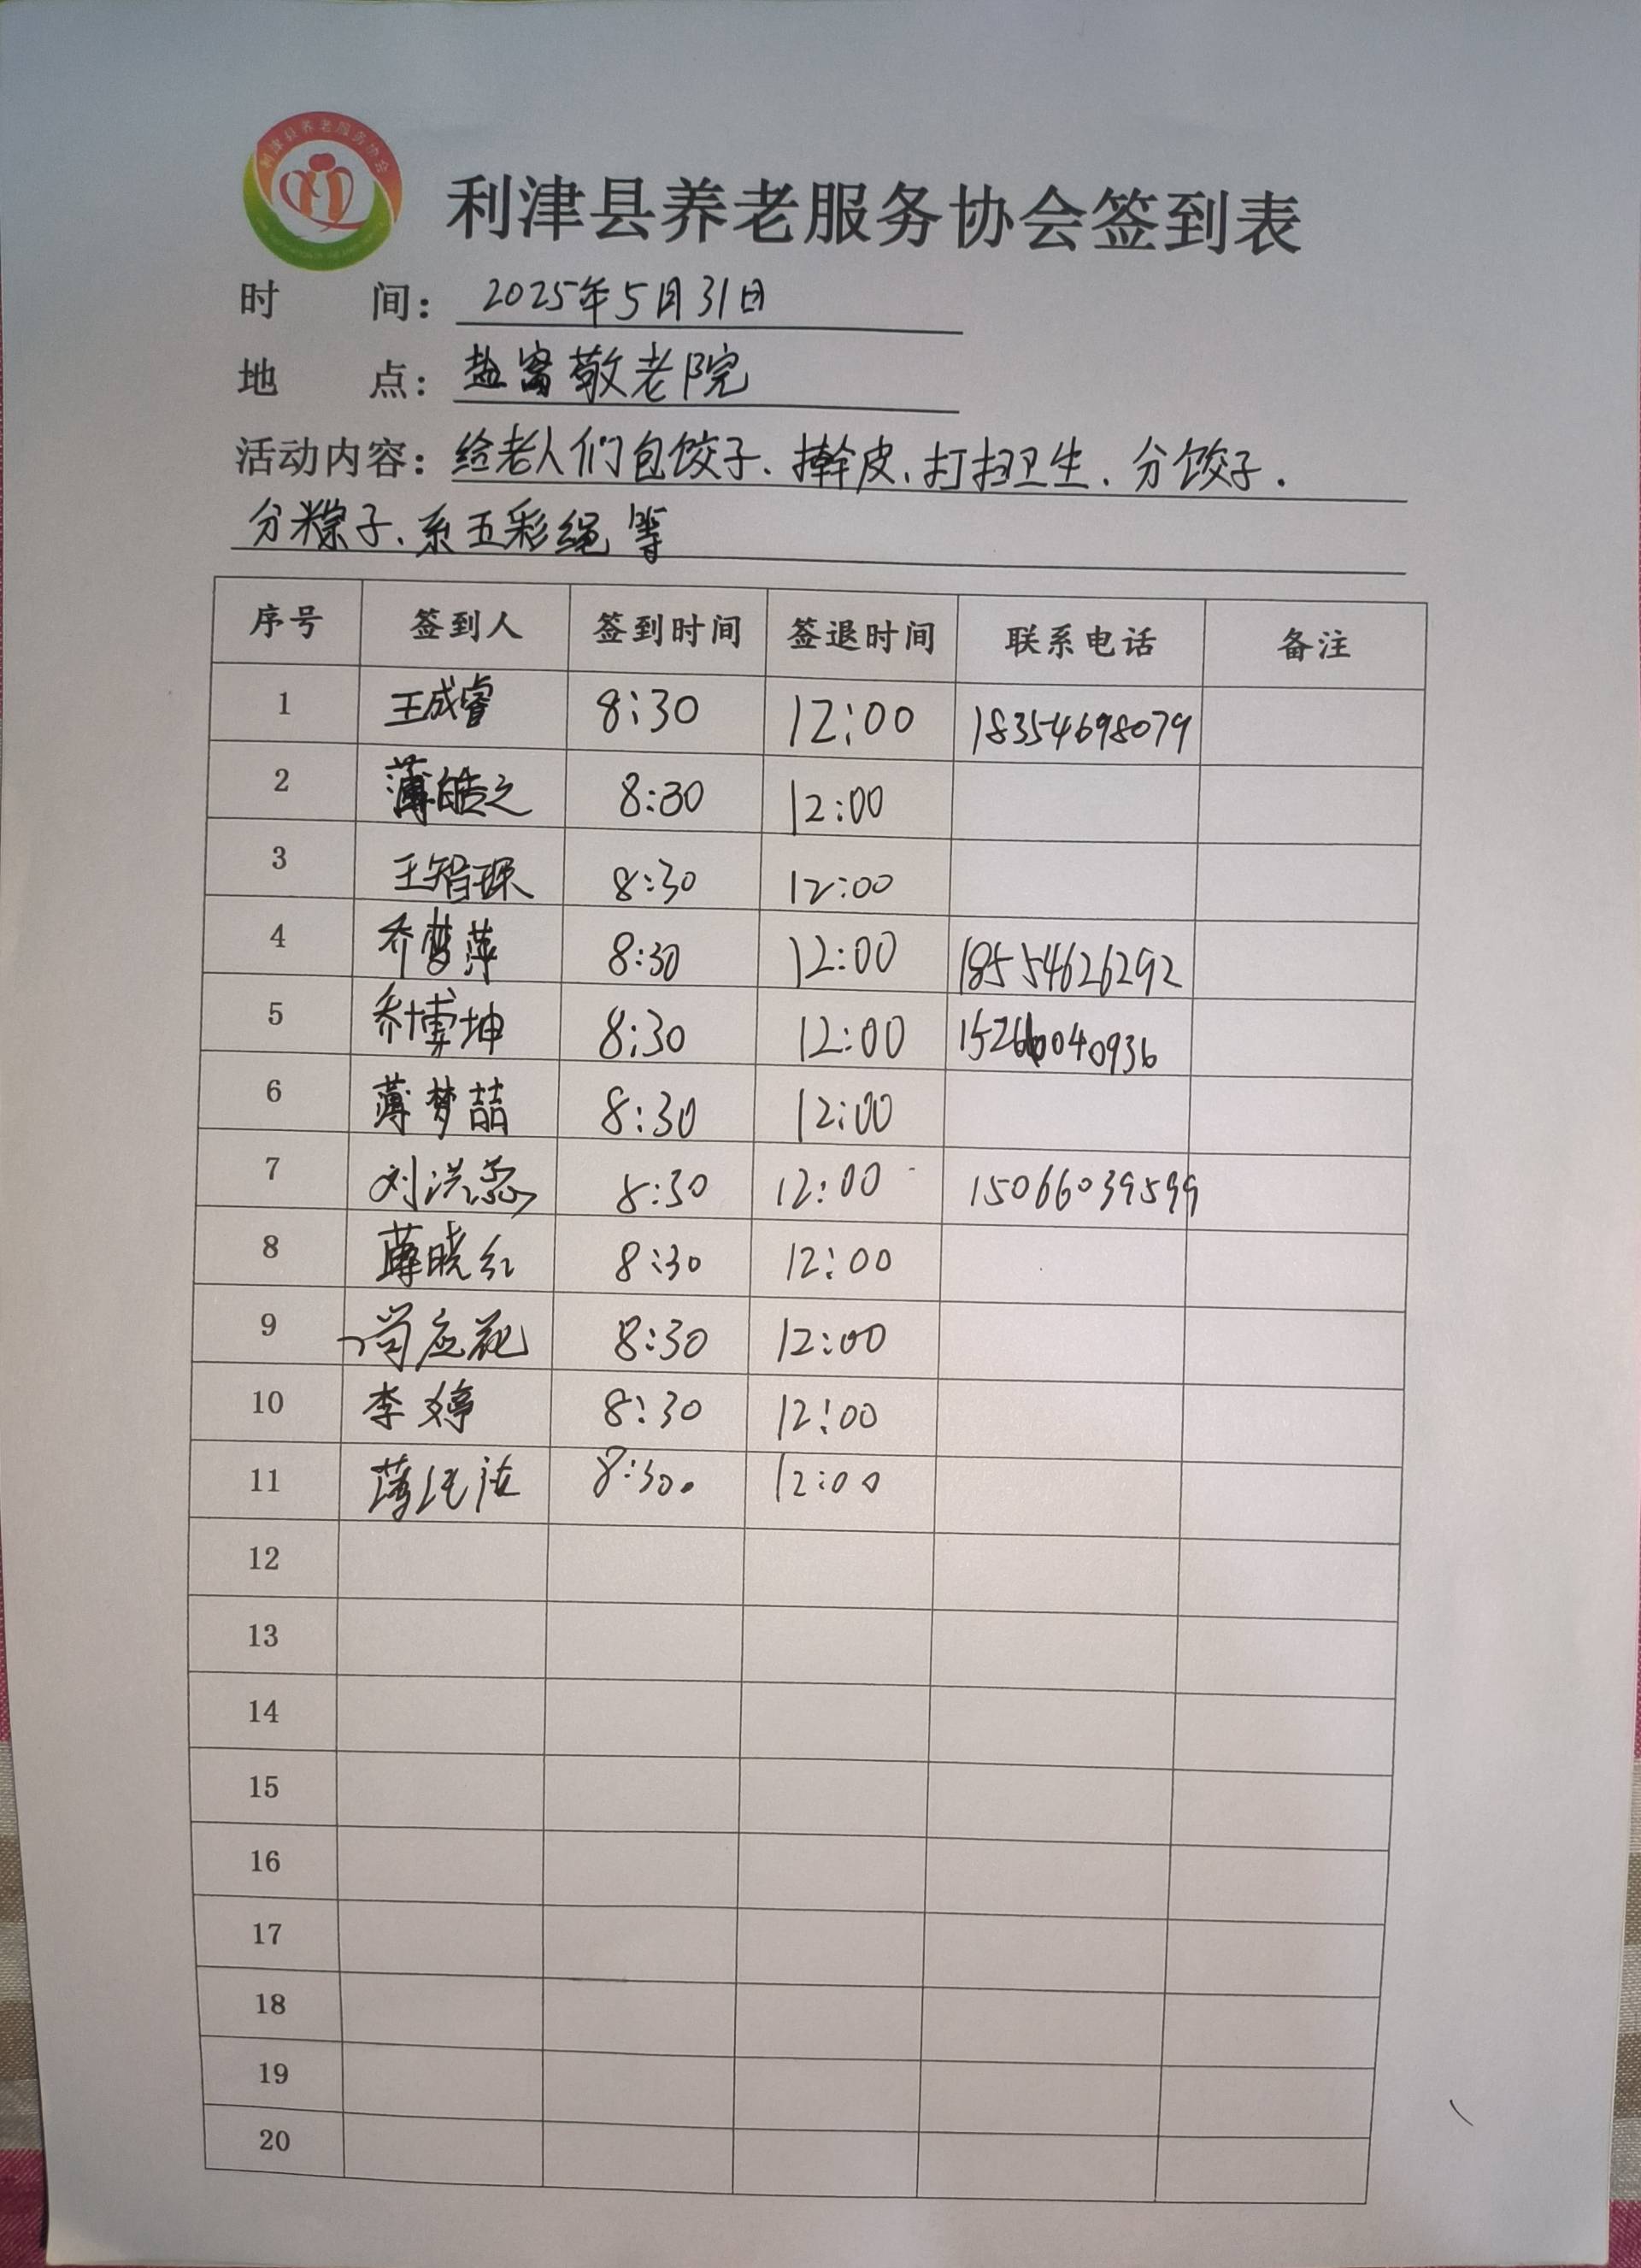 利津县养老服务协会
利津县养老服务协会签到表
时 间： 2025年5月31日
地 点： 盐窝敬老院
活动内容：给老人们包饺子、擀皮、打扫卫生、分饺子.
分粽子、系五彩绳等
序号 签到人 签到时间 签退时间 联系电话 备注
1 王成睿 8:30 12:00 18354698079
2 薄皓之 8:30 12:00
3 王智琛 8:30 12:00
4 乔梦萍 8:30 12:00 18554626292
5 乔博坤 8:30 12:00 15266040936
6 薄梦喆 8:30 12:00
7 刘洪蕊 8:30 12:00 15066039599
8 薄晓红 8:30 12:00
9 8:30 12:00
10 李婷 8:30 12:00
11 薄 8:30. 12:00
12
13
14
15
16
17
18
19
20